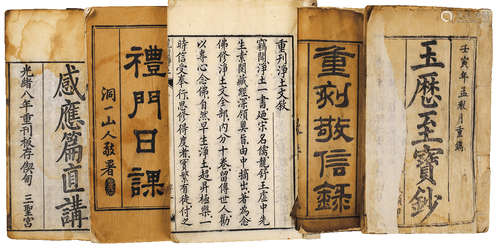 壬寅年孟秋月重鐫
玉歷至寶鈔
重刻敬信錄
重刊淨土文敘
竊聞淨土一書廼宋名儒龍舒王虛中先
生素閱藏經深領奧旨由中摘出者為念
佛修淨土文全部內分十卷留傳世人勸
以專心念佛自然早生淨土超昇極樂一
時信受奉行思修得度者實繁有徒付之
禮門日課
洞一山人敬署
感應篇直講
光緒八年重刊板存甸 三聖宮